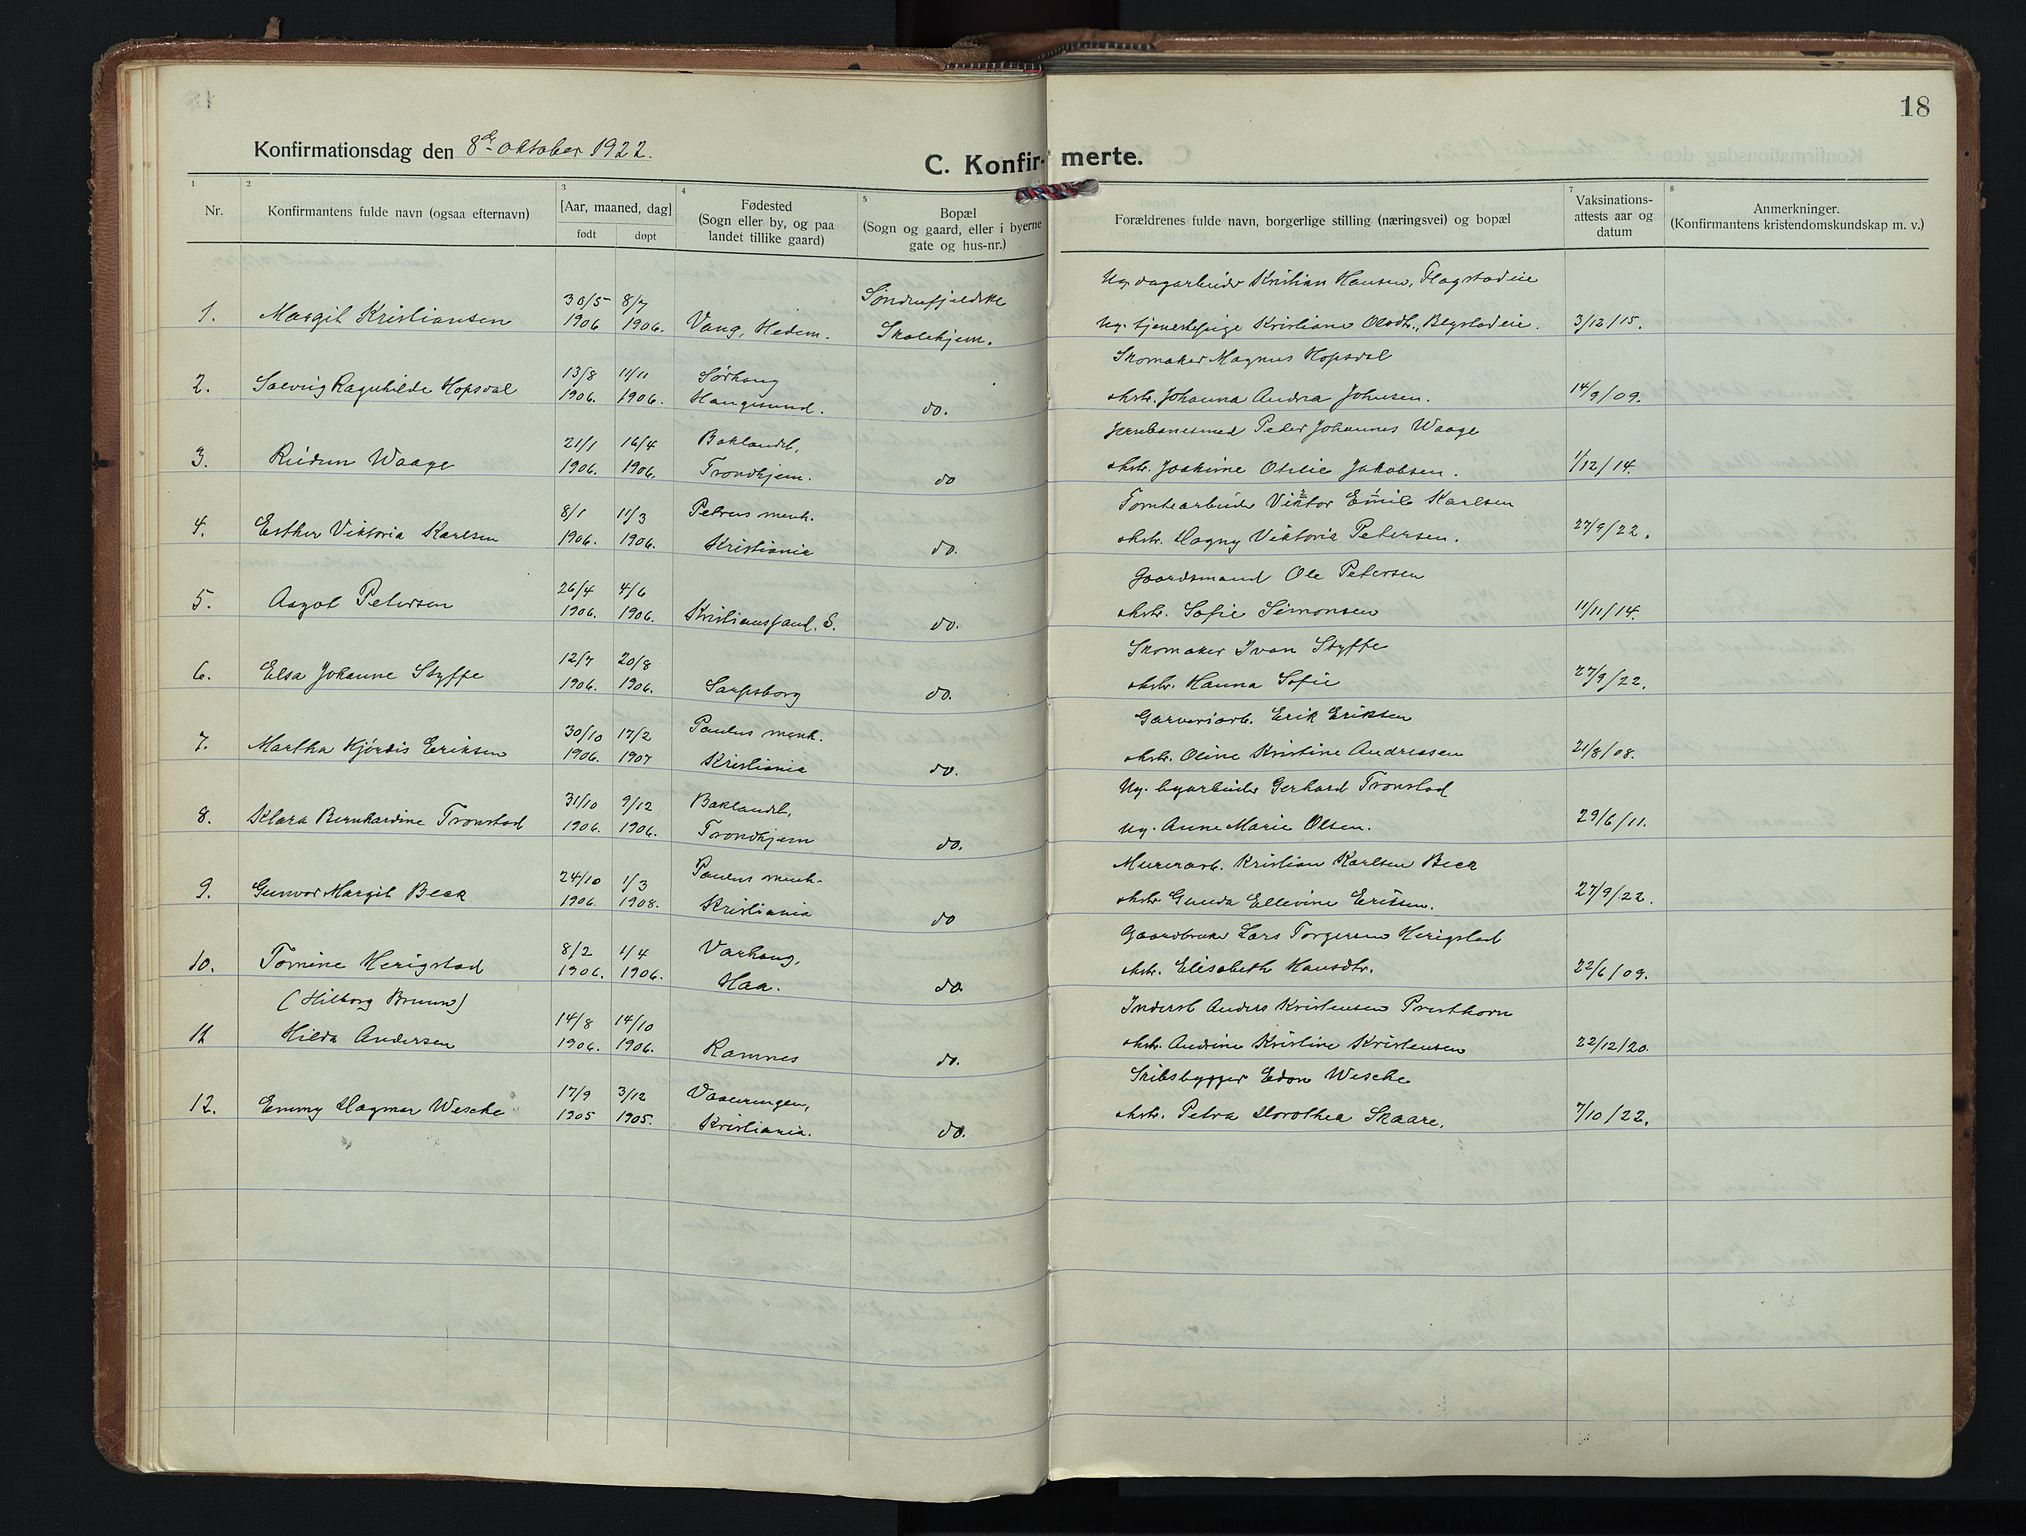 18
Konfirmationsdag den 8de oktober 1922.
C. Konfir- merte.
1 2 3 4 5 7 8
Nr.
Konfirmantens fulde navn (ogsaa efternavn)
[Aar, maaned, dag]
født døpt
Fødested
(Sogn eller by, og paa
landet tillike gaard)
Bopæl
(Sogn og gaard, eller i byerne
gate og hus-nr.)
Forældrenes fulde navn, borgerlige stilling (næringsvei) og bopæl
Vaksinations-
attests aar og
datum
Anmerkninger.
(Konfirmantens kristendomskundskap m. v.)
30/5 8/7 Søndenfjeldske Ug. dagarbeider Kristian Hansen, Flagstadeie
1. Margit Kristiansen 1906 1906. Vang, Hedem. Skolehjem. Ug. tjenestepige Kristiane Olsdtr., Blystadeie. 3/12/15.
13/8 11/11 Sørhaug Skomaker Magnus Hopsdal
2. Solveig Ragnhilde Hopsdal 1906. 1906. Haugesund. do. ehstr. Johanna Andrea Johnsen. 14/9/09.
21/1 16/4 Baklandet, Jernbanesmed Peder Johannes Waage
3. Reidun Waage 1906. 1906. Trondhjem. do ehstr. Joakime Otilie Jakobsen. 1/12/14.
8/1 11/3 Petrus menh. Tomtearbeider Viktor Emil Karlsen
4. Esther Viktoria Karlsen 1906. 1906. Kristiania do. ehstr. Dagny Viktoria Petersen. 27/9/22.
26/4 4/6 Gaardsmand Ole Petersen
5. Aagot Petersen 1906. 1906. Kristianssand. S. do. ehstr. Sofie Simonsen 11/11/14.
12/7 20/8 Skomaker Ivan Styffe
6. Elsa Johanne Styffe 1906. 1906. Sarpsborg do. ehstr. Hanna Sofie 27/9/22.
30/10 17/2 Paulus menh. Garveriarb. Erik Eriksen
7. Martha Hjørdis Eriksen 1906. 1907 Kristiania do. ehstr. Oline Kristine Andreassen 21/8/08.
31/10 9/12 Baklandet, Ug. byarbeider Gerhard Tronstad
8. Klara Bernhardine Tronstad 1906. 1906. Trondhjem do. ug. Anne Marie Olsen. 29/6/11.
24/10 1/3 Paulus menh. Murerarb. Kristian Karlsen Beck
9. Gunvor Margit Beck 1906. 1908. Kristiania do ehstr. Gunda Ellevine Eriksen. 27/9/22.
8/2 1/4 Varhaug, Gaardbruker Lars Torgersen Herigstad
10. Tomine Herigstad 1906. 1906. Haa. do. ehstr. Elisabeth Hansdtr. 22/6/09.
(Hilborg Bruun) 14/8 14/10 Inderst Anders Kristensen Presthorn
11 Hilda Andersen 1906. 1906. Ramnes do. ehstr. Andrine Kristine Kristensen 22/12/20.
17/9 3/12 Vaalerengen, Skibsbygger Edon Wesche
12. Emmy Dagmar Wesche 1905 1905. Kristiania. do. ehstr. Petra Dorothea Skaare. 7/10/22.